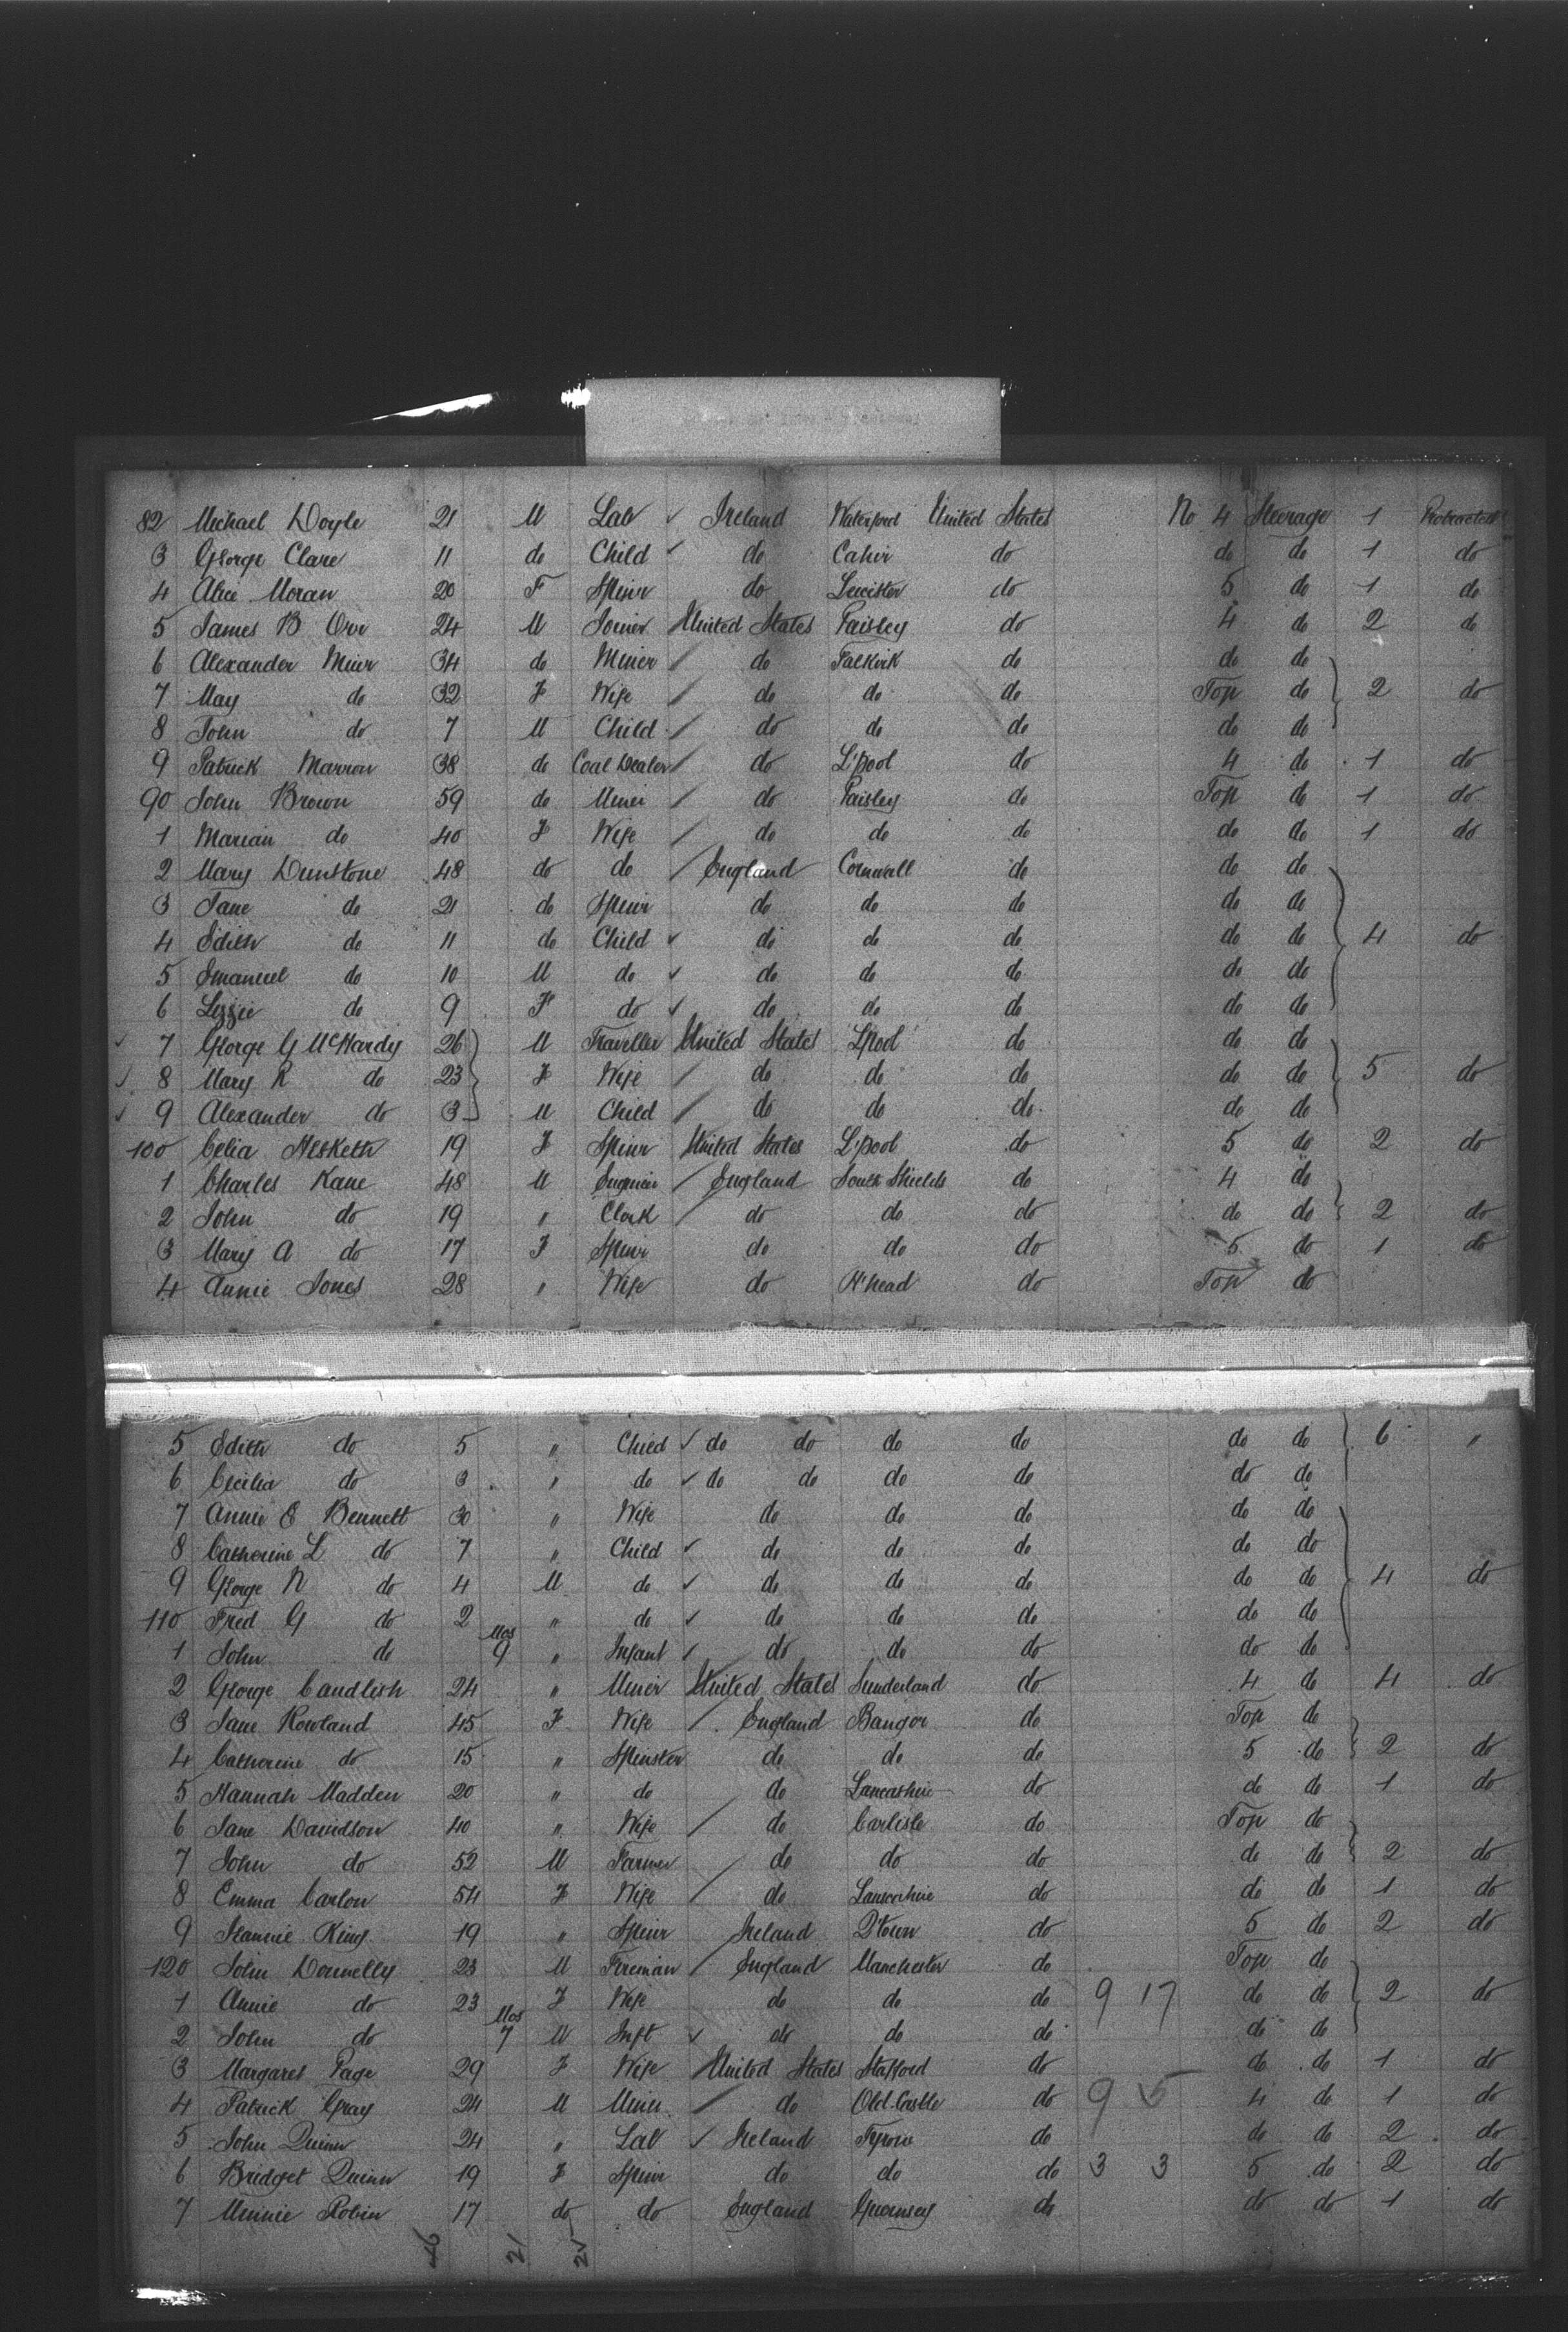 82 Michael Doyle 21 M Lab ✓ Ireland Waterford United States No 4 Steerage 1 Protracted
3 George Clare 11 do Child ✓ do Cahir do do do 1 do
4 Alice Moran 20 F Spinr do Leicister do 5 do 1 do
5 James B Orr 24 M Joiner United States Paisley do 4 do 2 do
6 Alexander Muir 34 do Miner / do Falkirk do do do
7 May do 32 F Wife / do do do Top do 2 do
8 John do 7 M Child / do do do do do
9 Patrick Marron 38 do Coal Dealer / do L'pool do 4 do 1 do
90 John Brown 59 do Miner / do Paisley do Top do 1 do
1 Marian do 40 F Wife / do do do do do 1 do
2 Mary Dunstone 48 do do / England Cornwall do do do
3 Jane do 21 do Spinr do do do do do
4 Edith do 11 do Child ✓ do do do do do 4 do
5 Emanuel do 10 M do ✓ do do do do do
6 Lizzie do 9 F do ✓ do do do do do
✓ 7 George G McHardy 26 M Traveller United States L'pool do do do
✓ 8 Mary R do 23 F Wife / do do do do do 5 do
✓ 9 Alexander do 3 M Child / do do do do do
100 Celia Hesketh 19 F Spinr United States L'pool do 5 do 2 do
1 Charles Kane 48 M Engineer / England South Shields do 4 do
2 John do 19 " Clerk / do do do do do 2 do
3 Mary A do 17 F Spinr do do do 5 do 1 do
4 Annie Jones 28 " Wife do H'head do Top do
5 Edith do 5 " Child ✓ do do do do do do 6 "
6 Cecilia do 3 " do ✓ do do do do do do
7 Annie E Bennett 30 " Wife do do do do do
8 Catherine L do 7 " Child ✓ do do do do do
9 George N do 4 M do ✓ do do do do do 4 do
110 Fred G do 2 " do ✓ do do do do do
1 John do Mos 9 " Infant / do do do do do
2 George Candlish 24 " Miner United States Sunderland do 4 do 4 do
3 Jane Rowland 45 F Wife / England Bangor do Top do
4 Catherine do 15 " Spinster do do do 5 do 2 do
5 Hannah Madden 20 " do do Lancashire do do do 1 do
6 Jane Davidson 40 " Wife / do Carlisle do Top do
7 John do 52 M Farmer / do do do do do 2 do
8 Emma Carlon 54 F Wife / do Lancashire do do do 1 do
9 King 19 " Spinr Ireland Q'town do 5 do 2 do
120 John Donnelly 23 M Fireman / England Manchester do Top do
1 Annie do 23 F Wife do do do 9 17 do do 2 do
2 John do Mos 7 M Inft ✓ do do do do do
3 Margaret Page 29 F Wife United States Stafford do do do 1 do
4 Patrick Gray 24 M Miner / do Old Castle do 9 5 4 do 1 do
5 John Quinn 24 " Lab ✓ Ireland Tyrone do do do 2 do
6 Bridget Quinn 19 F Spinr do do do 3 3 5 do 2 do
7 Minnie Robin 17 do do England Guernsey do do do 1 do
21